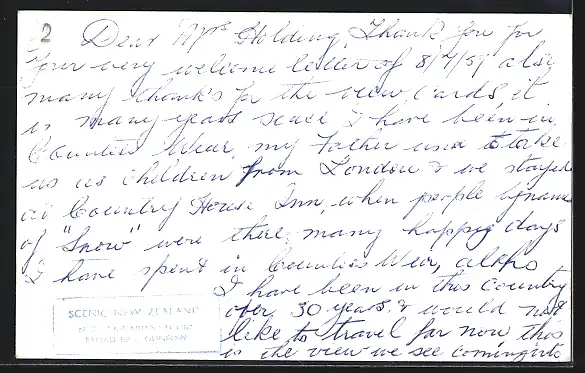 2
Dear Mrs Holding, Thank you for
your very welcome letter of 8/7/59 also
many thank's for the view cards, it
is many years since I have been in
Countess Wear, my Father used to take
us as children from London & we stayed
at Country House Inn, when people by name
of "Snow" were there, many happy days
I have spent in Countess Wear,
I have been in this Country
over 30 years & would not
like to travel far now, this
is the view we see coming into
SCENIC NEW ZEALAND